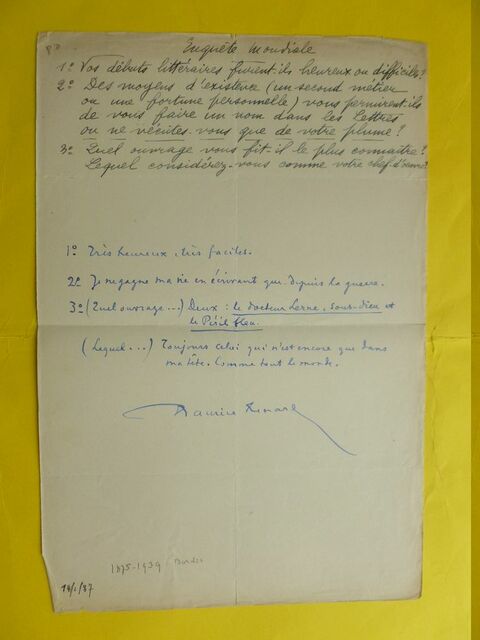 Enquête mondiale
1º Vos débuts littéraires furent-ils heureux ou difficiles?
2º Des moyens d'existence (un second métier
ou une fortune personnelle) vous permirent-ils
de vous faire un nom dans les lettres
ou ne vécûtes-vous que de votre plume?
3º Quel ouvrage vous fit-il le plus connaître?
Lequel considérez-vous comme votre chef-d'œuvre?
1º Très heureux, très faciles.
2º Je ne gagne ma vie en écrivant que depuis la guerre.
3º (Quel ouvrage...) Deux : le docteur Lerne, sous-dieu et
le Péril bleu.
(Lequel...) Toujours celui qui n'est encore que dans
ma tête. Comme tout le monde.
Maurice Renard
1875-1939